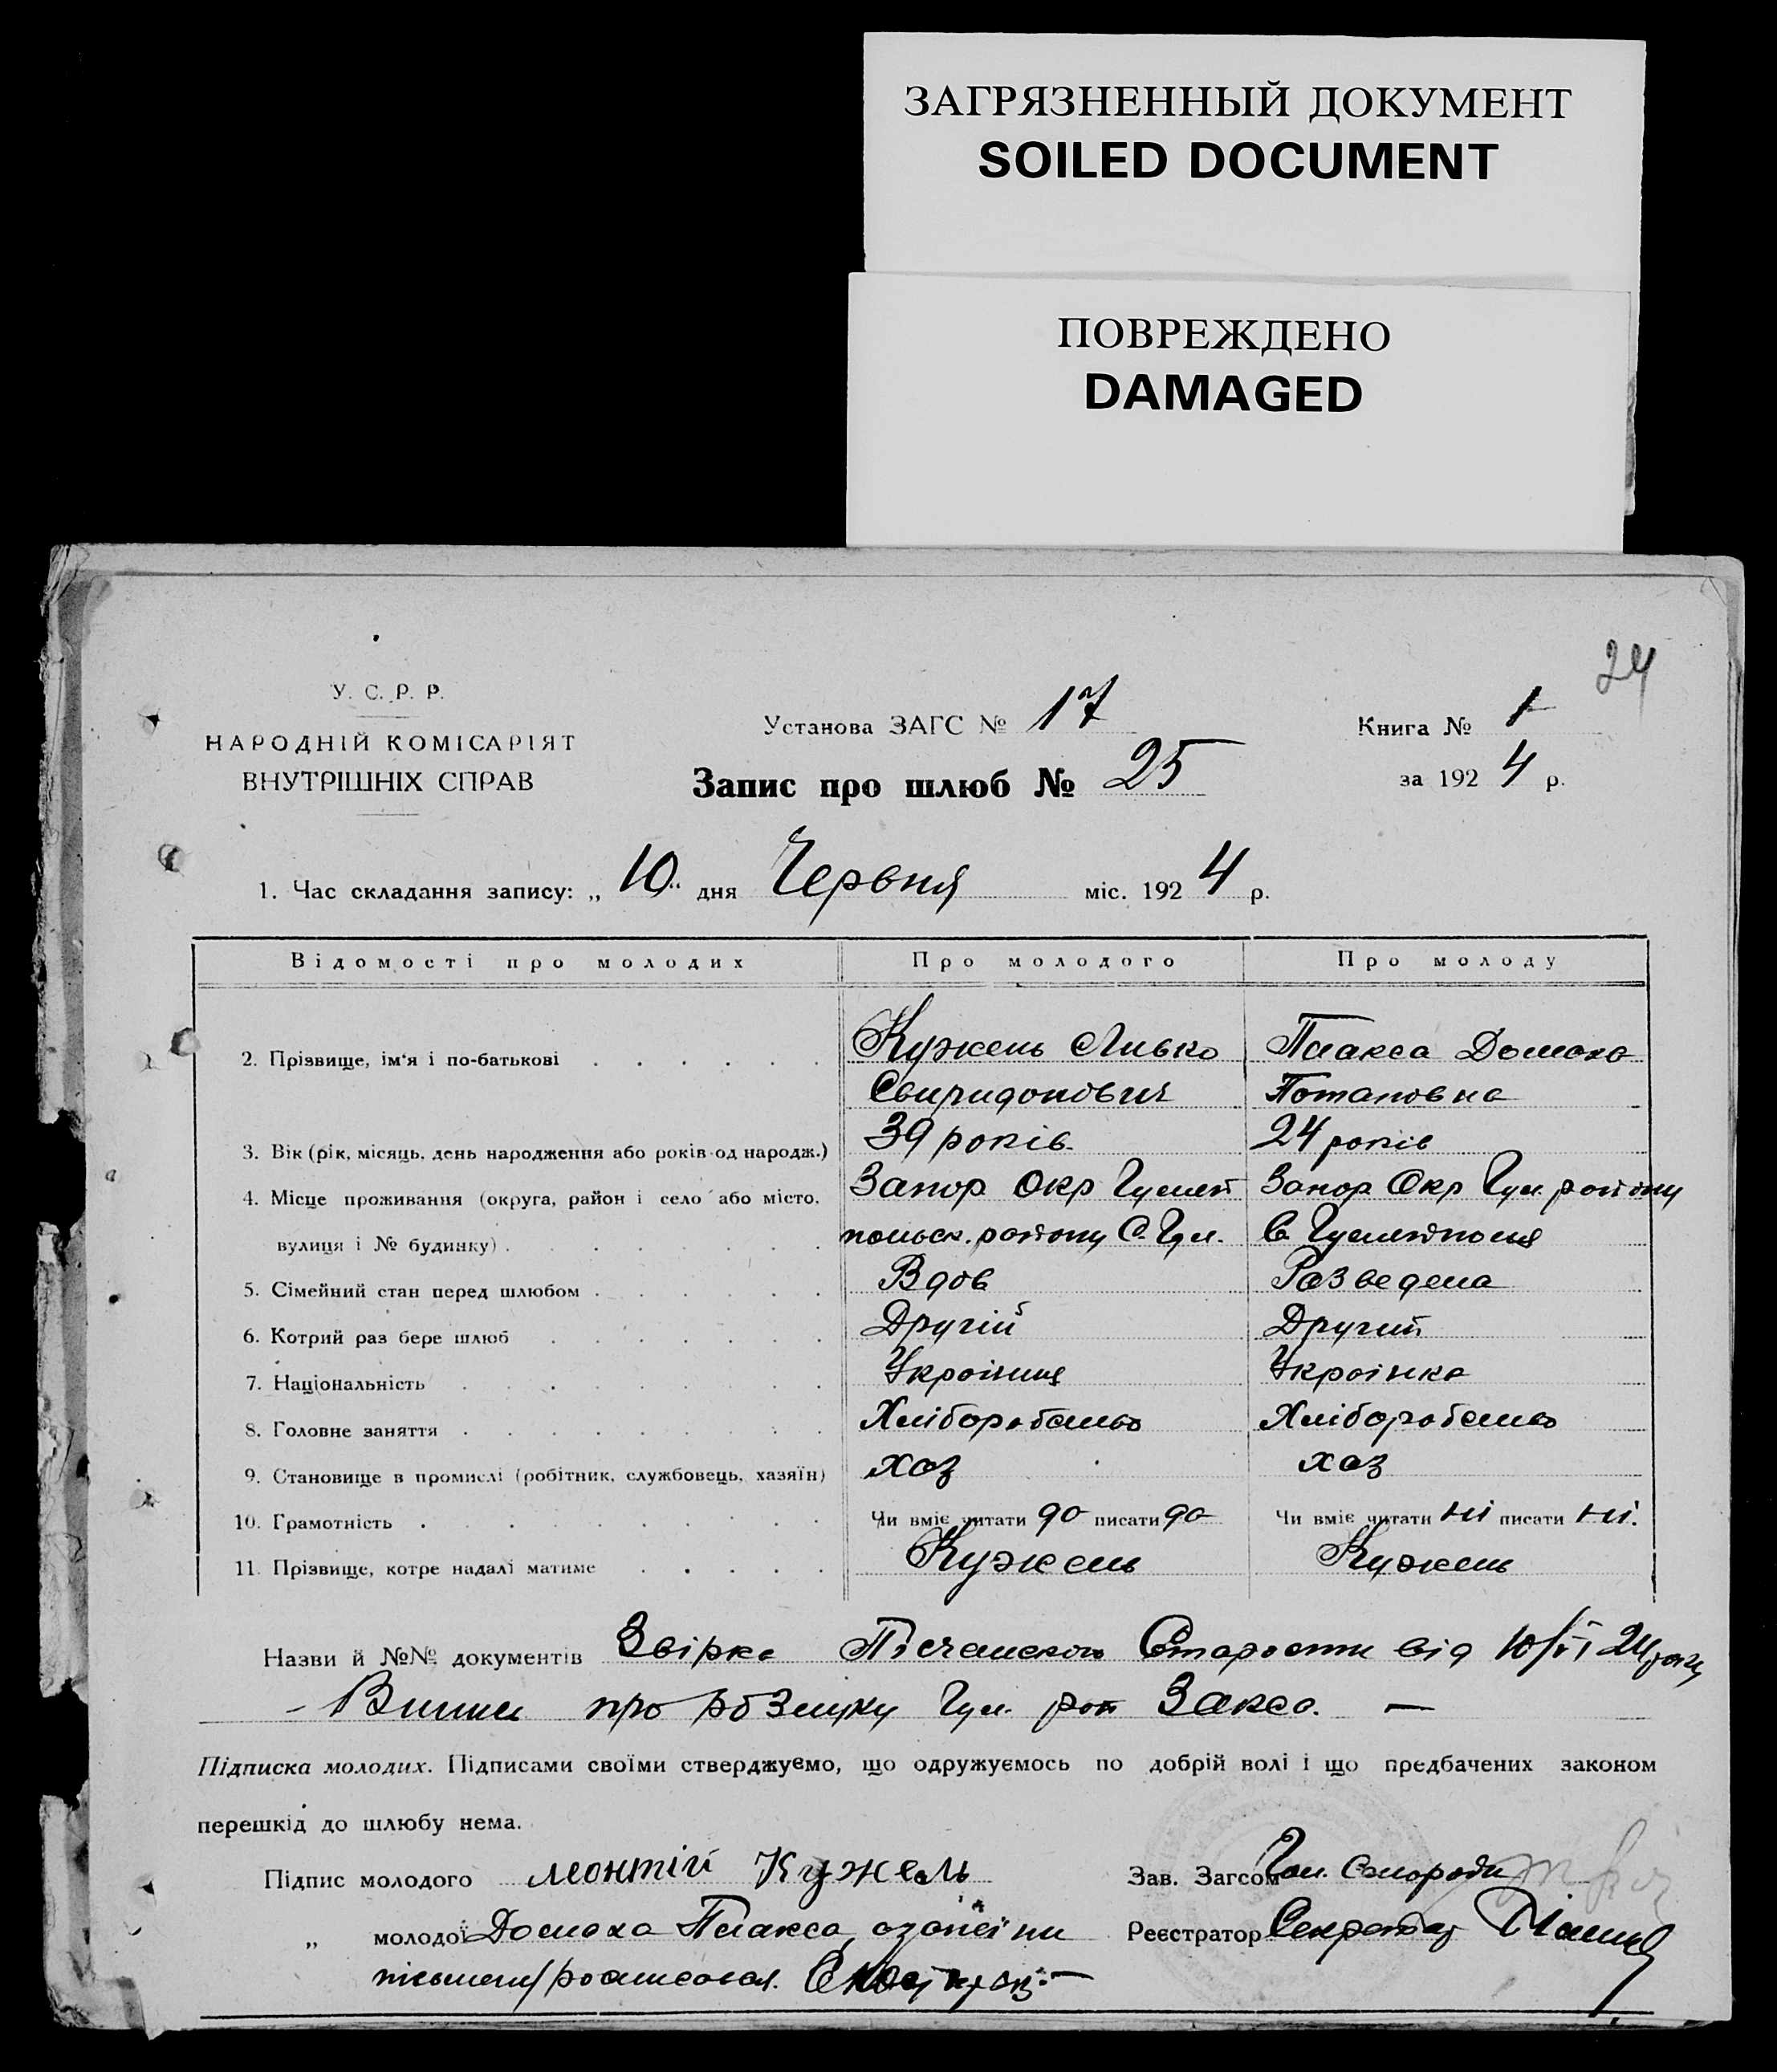 ЗАГРЯЗНЕННЫЙ ДОКУМЕНТ
SOILED DOCUMENT
ПОВРЕЖДЕНО
DAMAGED
24
У. С. Р. Р.
НАРОДНІЙ КОМІСАРІЯТ
ВНУТРІШНІХ СПРАВ
Установа ЗАГС № 17
Книга № 1
Запис про шлюб № 25
за 1924 р.
1. Час складання запису: „ 10 “ дня Червня міс. 1924 р.
Відомості про молодих Про молодого Про молоду
2. Прізвище, ім'я і по-батькові Кужель Ливко Плакса Домаха
Свиридонович Потаповна
3. Вік (рік, місяць, день народження або років од народж.) 39 років 24 років
4. Місце проживання (округа, район і село або місто, Запор Окр Гуляй Запор Окр Гул. району
вулиця і № будинку) польск. району С. Гул. Гуляйполя
5. Сімейний стан перед шлюбом Вдов Разведена
6. Котрий раз бере шлюб Другій Другий
7. Національність Украінця Украінка
8. Головне заняття Хліборобство Хліборобство
9. Становище в промислі (робітник, службовець, хазяїн) хаз хаз
10. Грамотність Чи вміє читати да писати да Чи вміє читати ні писати ні.
11. Прізвище, котре надалі матиме Кужель Кужель
Назви й №№ документів Звірка Пісчанского Старости від 10/VI 24 року
про розлуку Гул. рай Загса. —
Підписка молодих. Підписами своїми стверджуємо, що одружуємось по добрій волі і що предбачених законом
перешкід до шлюбу нема.
Підпис молодого леонтій Кужель Зав. Загсом
„ молодої Домаха Плакса, Реєстратор Секретар